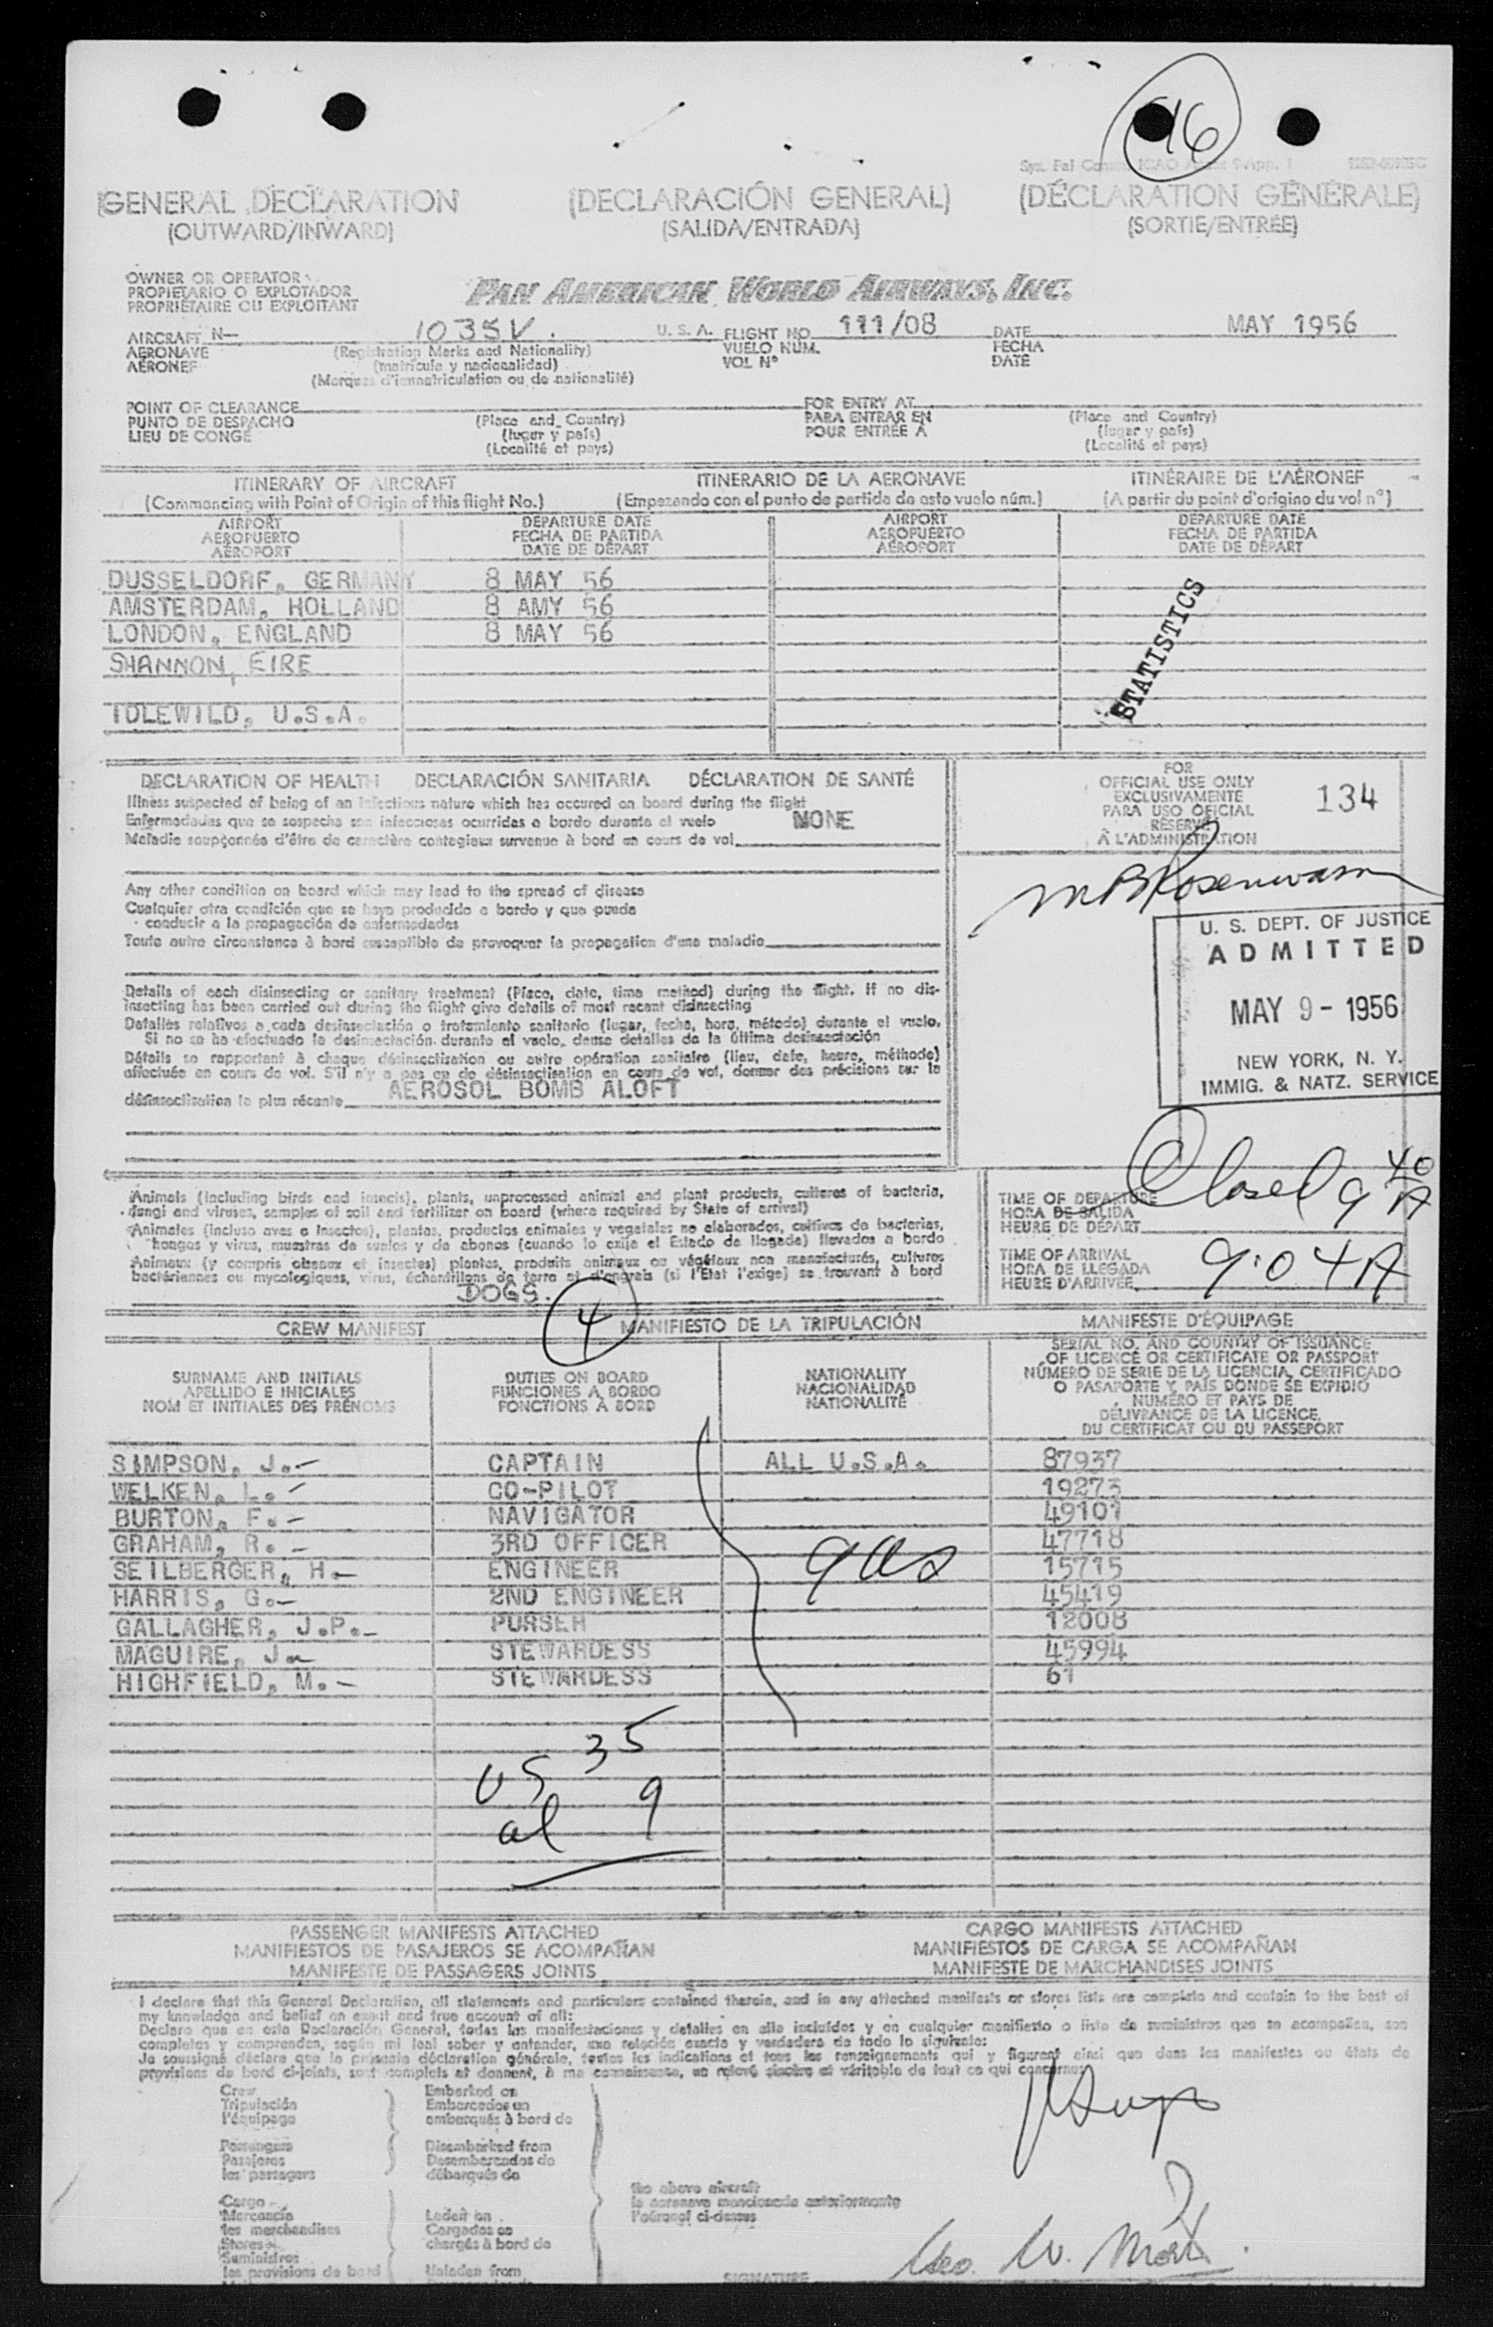 46
GENERAL DECLARATION (DECLARACIÓN GENERAL) (DÉCLARATION GÉNÉRALE)
(OUTWARD/INWARD) (SALIDA/ENTRADA) (SORTIE/ENTRÉE)
OWNER OR OPERATOR
PROPIETARIO O EXPLOTADOR
PROPRIÉTAIRE OU EXPLOITANT
PAN AMERICAN WORLD AIRWAYS, INC.
AIRCRAFT N- 1035V. U. S. A. FLIGHT NO. 111/08 DATE MAY 1956
AERONAVE (Registration Marks and Nationality) VUELO NUM. FECHA
AÉRONEF (matrícula y nacionalidad) VOL N° DATE
(Marques d'immatriculation ou de nationalité)
POINT OF CLEARANCE FOR ENTRY AT
PUNTO DE DESPACHO (Place and Country) PARA ENTRAR EN (Place and Country)
LIEU DE CONGÉ (lugar y país) POUR ENTRÉE À (lugar y país)
(Localité et pays) (Localité et pays)
ITINERARY OF AIRCRAFT ITINERARIO DE LA AERONAVE ITINÉRAIRE DE L'AÉRONEF
(Commencing with Point of Origin of this flight No.) (Empezando con el punto de partida de este vuelo núm.) (A partir du point d'origine du vol n°)
AIRPORT DEPARTURE DATE AIRPORT DEPARTURE DATE
AEROPUERTO FECHA DE PARTIDA AEROPUERTO FECHA DE PARTIDA
AÉROPORT DATE DE DÉPART AÉROPORT DATE DE DÉPART
DUSSELDORF, GERMANY 8 MAY 56
AMSTERDAM, HOLLAND 8 AMY 56
LONDON, ENGLAND 8 MAY 56
SHANNON, EIRE
IDLEWILD, U.S.A.
STATISTICS
DECLARATION OF HEALTH DECLARACIÓN SANITARIA DÉCLARATION DE SANTÉ
Illness suspected of being of an infectious nature which has occured on board during the flight
Enfermedades que se sospecha son infecciosas ocurridas a bordo durante el vuelo NONE
Maladie soupçonnée d'être de caractère contagieux survenue à bord en cours de vol
Any other condition on board which may lead to the spread of disease
Cualquier otra condición que se haya producido a bordo y que pueda
conducir a la propagación de enfermedades
Toute autre circonstance à bord susceptible de provoquer la propagation d'une maladie
Details of each disinsecting or sanitary treatment (Place, date, time method) during the flight. If no dis-
insecting has been carried out during the flight give details of most recent disinsecting
Detalles relativos a cada desinsectación o tratamiento sanitario (lugar, fecha, hora, método) durante el vuelo.
Si no se ha efectuado la desinsectación durante el vuelo, dense detalles de la última desinsectación
Détails se rapportant à chaque désinsectisation ou autre opération sanitaire (lieu, date, heure, méthode)
effectuée en cours de vol. S'il n'y a pas eu de désinsectisation en cours de vol, donner des précisions sur la
désinsectisation la plus récente AEROSOL BOMB ALOFT
FOR
OFFICIAL USE ONLY
EXCLUSIVAMENTE
PARA USO OFICIAL
RÉSERVÉ
À L'ADMINISTRATION
134
U. S. DEPT. OF JUSTICE
ADMITTED
MAY 9 - 1956
NEW YORK, N. Y.
IMMIG. & NATZ. SERVICE
Animals (including birds and insects), plants, unprocessed animal and plant products, cultures of bacteria,
fungi and viruses, samples of soil and fertilizer on board (where required by State of arrival)
Animales (incluso aves e insectos), plantas, productos animales y vegetales no elaborados, cultivos de bacterias,
hongos y virus, muestras de suelos y de abonos (cuando lo exija el Estado de llegada) llevados a bordo
Animaux (y compris oiseaux et insectes) plantes, produits animaux ou végétaux non manufacturés, cultures
bactériennes ou mycologiques, virus, échantillons de terre et d'engrais (si l'État l'exige) se trouvant à bord
DOGS.
Closed 9 40 A
TIME OF DEPARTURE
HORA DE SALIDA
HEURE DE DÉPART
TIME OF ARRIVAL
HORA DE LLEGADA
HEURE D'ARRIVÉE
9:04A
4
CREW MANIFEST MANIFIESTO DE LA TRIPULACIÓN MANIFESTE D'ÉQUIPAGE
SURNAME AND INITIALS
APELLIDO E INICIALES
NOM ET INITIALES DES PRÉNOMS
DUTIES ON BOARD
FUNCIONES A BORDO
FONCTIONS À BORD
NATIONALITY
NACIONALIDAD
NATIONALITÉ
SERIAL NO. AND COUNTRY OF ISSUANCE
OF LICENCE OR CERTIFICATE OR PASSPORT
NÚMERO DE SERIE DE LA LICENCIA, CERTIFICADO
O PASAPORTE Y PAÍS DONDE SE EXPIDIÓ
NUMÉRO ET PAYS DE
DÉLIVRANCE DE LA LICENCE,
DU CERTIFICAT OU DU PASSEPORT
SIMPSON, J. CAPTAIN ALL U.S.A. 87937
WELKEN, L. CO-PILOT 19273
BURTON, F. NAVIGATOR 49101
GRAHAM, R. 3RD OFFICER 47718
SEILBERGER, H. ENGINEER 15715
HARRIS, G. 2ND ENGINEER 45419
GALLAGHER, J.P. PURSER 12008
MAGUIRE, J. STEWARDESS 45994
HIGHFIELD, M. STEWARDESS 61
US 35
al 9
PASSENGER MANIFESTS ATTACHED CARGO MANIFESTS ATTACHED
MANIFIESTOS DE PASAJEROS SE ACOMPAÑAN MANIFIESTOS DE CARGA SE ACOMPAÑAN
MANIFESTE DE PASSAGERS JOINTS MANIFESTE DE MARCHANDISES JOINTS
I declare that this General Declaration, all statements and particulars contained therein, and in any attached manifests or stores lists are complete and contain to the best of
my knowledge and belief an exact and true account of all:
Declaro que en esta Declaración General, todas las manifestaciones y detalles en ella incluídos y en cualquier manifiesto o lista de suministros que se acompañen, son
completos y comprenden, según mi leal saber y entender, una relación exacta y verdadera de todo lo siguiente:
Je soussigné déclare que la présente déclaration générale, toutes les indications et tous les renseignements qui y figurent ainsi que dans les manifestes ou états de
provisions de bord ci-joints, sont complets et donnent, à ma connaissance, un relevé sincère et véritable de tout ce qui concerne:
Crew Embarked on
Tripulación Embarcados en
l'équipage embarqués à bord de
Passengers Disembarked from
Pasajeros Desembarcados de
les passagers débarqués de
the above aircraft
la aeronave mencionada anteriormente
l'aéronef ci-dessus
Cargo
Mercancía Laden on
les marchandises Cargados en
Stores chargés à bord de
Suministros
les provisions de bord Unladen from
SIGNATURE